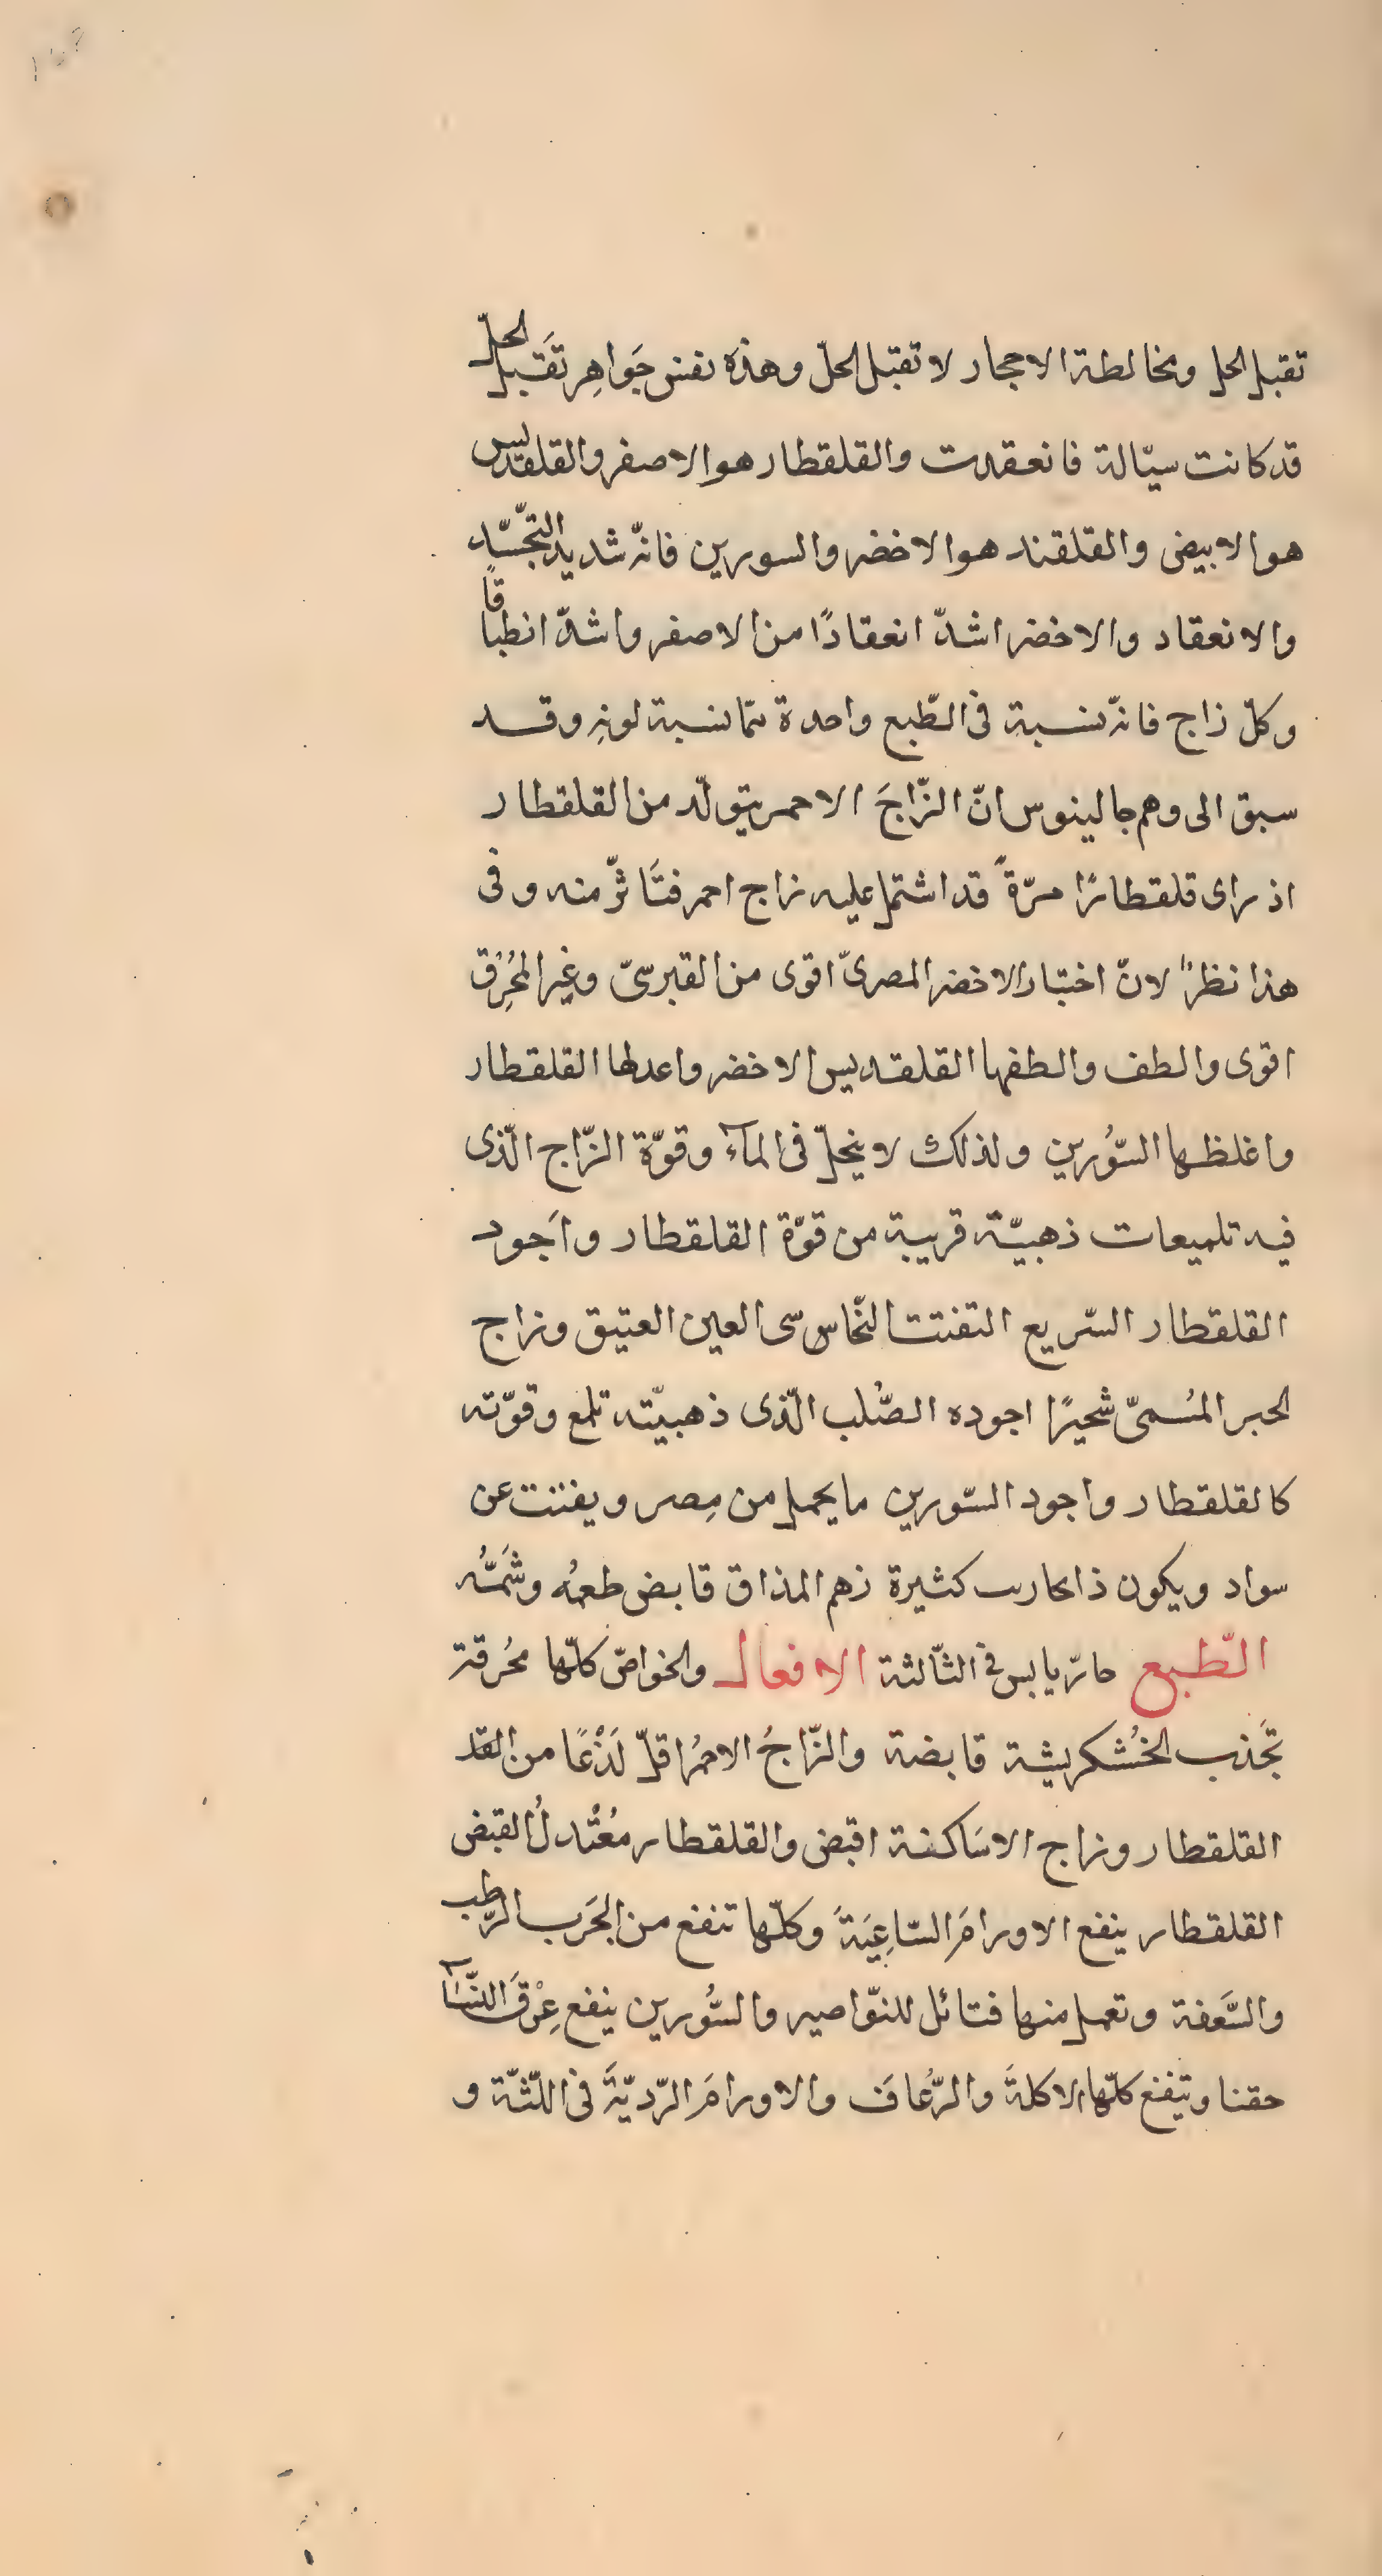 تقبل الحل ومخالطة الاحجار لا تقبل الحلّ وهذه نفس جَواهِر تَقبل الحلّ
قد كانت سيّالة فانعقدت والقلقطار هو الاصفر والقلقديس
هو الابيض والقلقند هو الاخضر والسورين فانّه شديد التّجسّد
والانعقاد والاخضر اشدّ انعقادًا من الاصفر واشدّ انطباقًا
وكلّ زاج فانّه نسبة فى الطّبع واحدة ممّا نسبة لونِه وقد
سبق الى وهم جالينوس انّ الزّاجَ الاحمر يتولّد من القلقطار
اذ راى قلقطارًا مرّةً قد اشتمل عليه زاج احمر فتَاثّر منه وفى
هذا نظرٌ لانّ اختبار الاخضر المصرىّ اقوى من القبرسىّ وغير المُحْرَق
اقوى والطف والطفها القلقديس الاخضر واعدلها القلقطار
واغلظها السّوُرين ولذلك لا ينحلّ فى المآء وقوّة الزّاج الّذى
فيه تلميعات ذهبيّة قريبة من قوّة القلقطار واَجود
القلقطار السّريع التفتت النّحاسى العين العتيق وزاج
الحبر المُسمىّ شحيرًا اجوده الصُّلب الّذى ذهبيّته تلمع وقوّته
كالقلقطار واجود السّورين ما يحمل من مِصر ويفتت عن
سواد ويكون ذا تجاويف كثيرة زهم المذاق قابض طعمُه وشَمُّه
الطّبع حارّ يابس فى الثّالثة الافعال والخواصّ كلّها مُحرقة
تَجذب الخُشكريشة قابضة والزّاجُ الاحمُر اقلّ لَذْعًا من القلـ
القلقطار وزاج الاسَاكفة اقبض والقلقطار مُعْتدلُ القبض
القلقطار ينفع الاورامَ السّاعِيَةَ وكلّها تنفع من الجَرَب الرّطب
والسَّعَفة وتعمل منها فتائل للنّواصير والسُّورين ينفع عِرْقَ النّسَآ
حقنا وتنفع كلّها الاكلةَ والرُّعافَ والاورامَ الرّديّةَ فى اللّثّة و